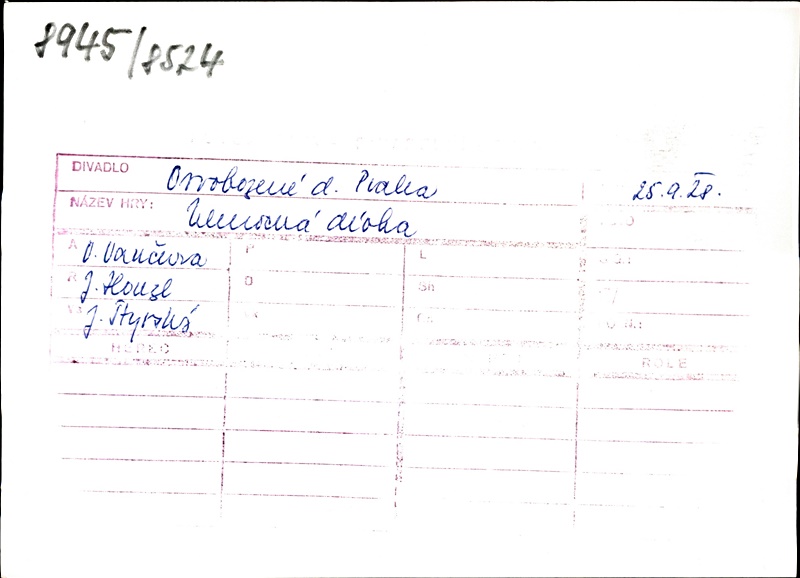 8945/8524
DIVADLO Osvobozené d. Praha 25.9.28.
NÁZEV HRY: Nemocná dívka
A V. Vančura P L
R J. Honzl O Sh
J. Štyrský
HEREC ROLE